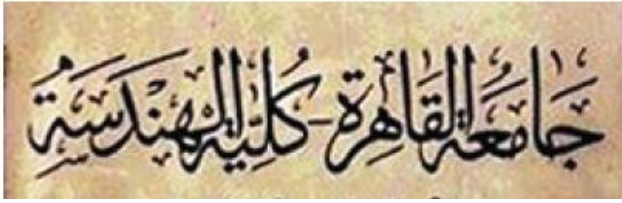 جَامعَة القَاهِرَة - كُليَّة الهَندَسَة